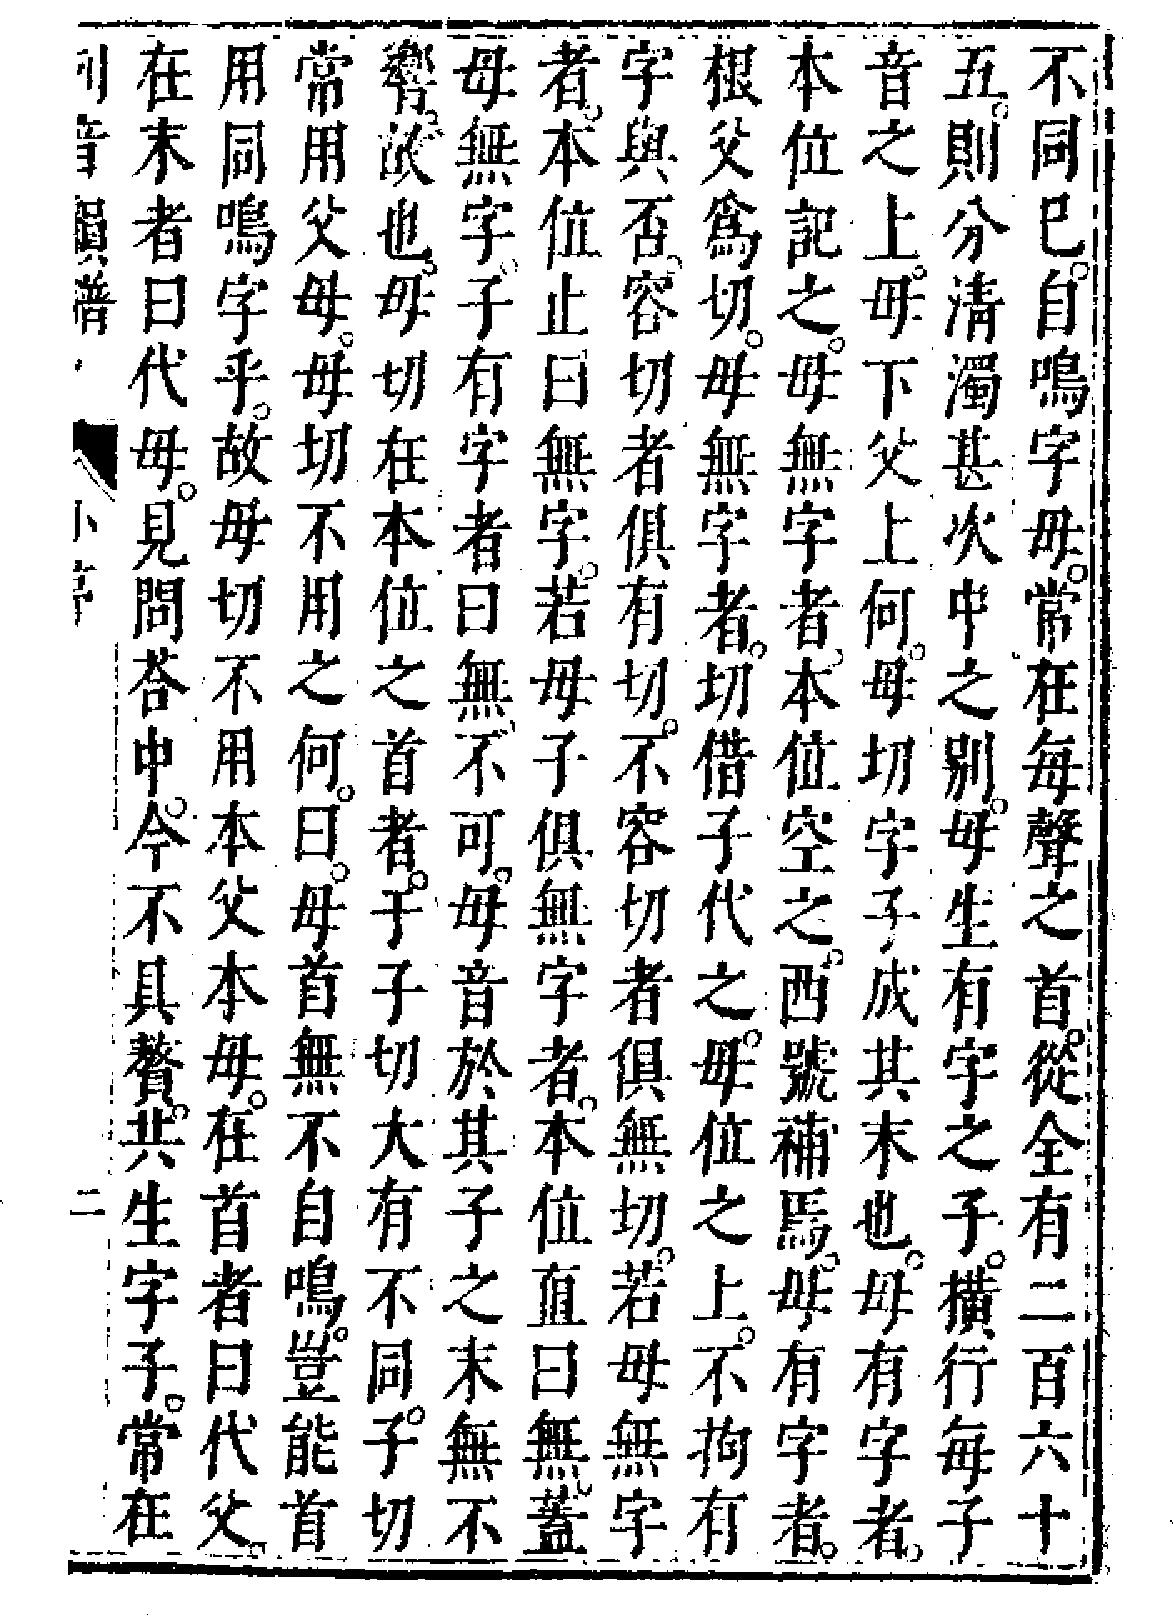 不同已。自鳴字母。常在每聲之首。從全有二百六十
五。則分清濁甚次中之別。母生有字之子。橫行每子
音之上。母下父上何。母切字子成其末也。母有字者。
本位記之。母無字者、本位空之。西號補焉。母有字者。
根父爲切。母無字者。切借子代之。母位之上。不拘有
字與否。容切者俱有切。不容切者俱無切。若母無字
者。本位止曰無字。若母子俱無字者。本位直曰無。蓋
母無字。子有字者曰無、不可。母音於其子之末無不
響。故也。母切在本位之首者。于子切大有不同。子切
常用父母。母切不用之何。曰。母首無不自鳴。豈能首
用同鳴字乎。故母切不用本父本母。在首者曰代父。
在末者曰代母。見問荅中。今不具贅。共生字子。常在
列音韻譜 小序 二